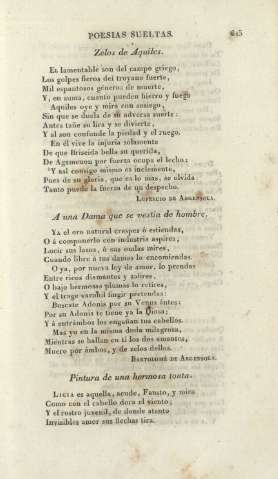 POESIAS SUELTAS. 615
Zelos de Aquiles.
El lamentable son del campo griego,
Los golpes fieros del troyano fuerte,
Mil espantosos géneros de muerte,
Y, en suma, cuanto pueden hierro y fuego
Aquiles oye y mira con sosiego,
Sin que se duela de su adversa suerte:
Antes tañe su lira y se divierte,
Y al son confunde la piedad y el ruego.
En él vive la injuria solamente
De que Briseida bella su querida,
De Agamenon por fuerza ocupa el lecho;
Y así consigo mismo es inclemente,
Pues de su gloria, que es lo mas, se olvida:
Tanto puede la fuerza de un despecho.
Lupercio de Argensola.
A una Dama que se vestia de hombre.
Ya el oro natural crespes ó estiendas,
O á componerlo con industria aspires;
Lucir sus lazos, ó sus ondas mires,
Cuando libre á tus damas lo encomiendas.
O ya, por nueva ley de amor, lo prendas
Entre ricos diamantes y zafires,
O bajo hermosas plumas lo retires,
Y el trage varonil fingir pretendas:
Buscate Adonis por su Venus ántes:
Por su Adonis te tiene ya la Diosa;
Y á entrámbos los engañan tus cabellos.
Mas yo en la misma duda milagrosa,
Mientras se hallan en tí los dos amantes,
Muero por ámbos, y de zelos dellos.
Bartholomé de Argensola.
Pintura de una hermosa tonta.
Licia es aquella, acude, Fausto, y mira
Como con el cabello dora el viento,
Y el rostro juvenil, de donde atento
Invisibles amor sus flechas tira.